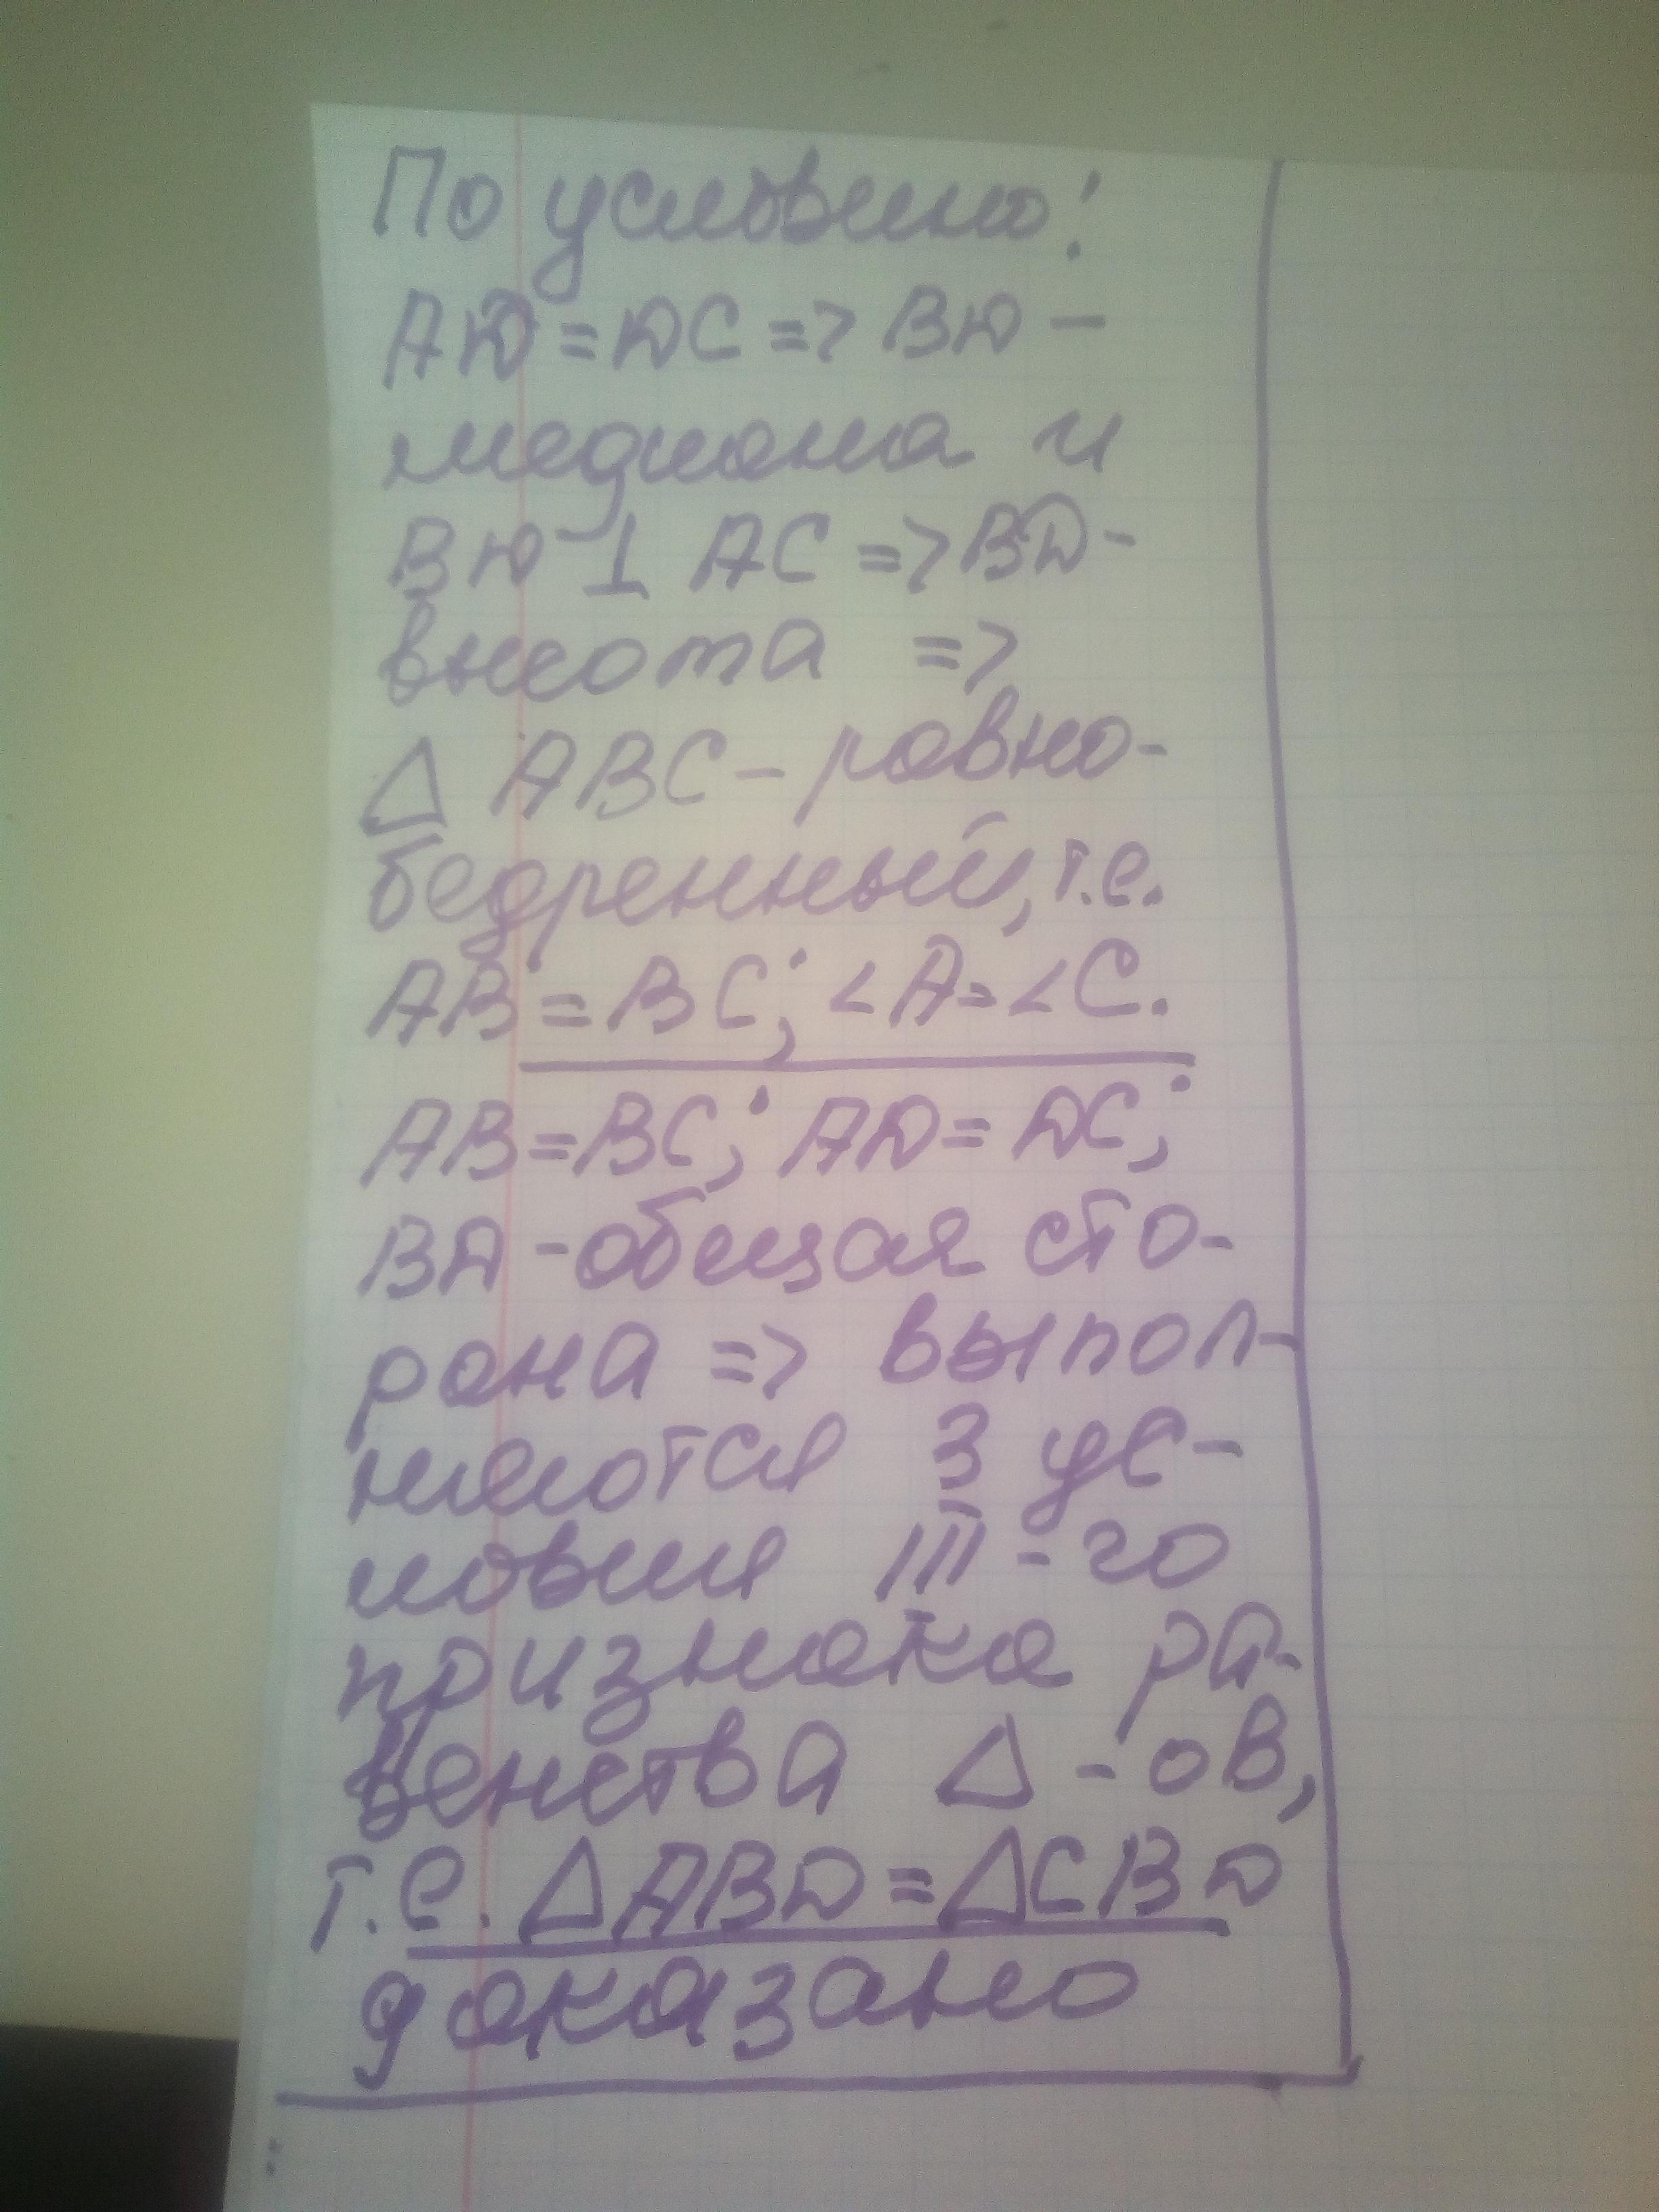 По условию:
AD = DC => BD –
медиана и
BD ⊥ AC => BD –
высота =>
△ ABC – равно-
бедренный, т.е.
AB = BC; <A = <C.
AB = BC; AD = DC;
BD – общая сто-
рона => выпол-
няются 3 ус-
ловия III – го
признака ра-
венства △ – ов,
т.е. △ABD = △CBD
доказано